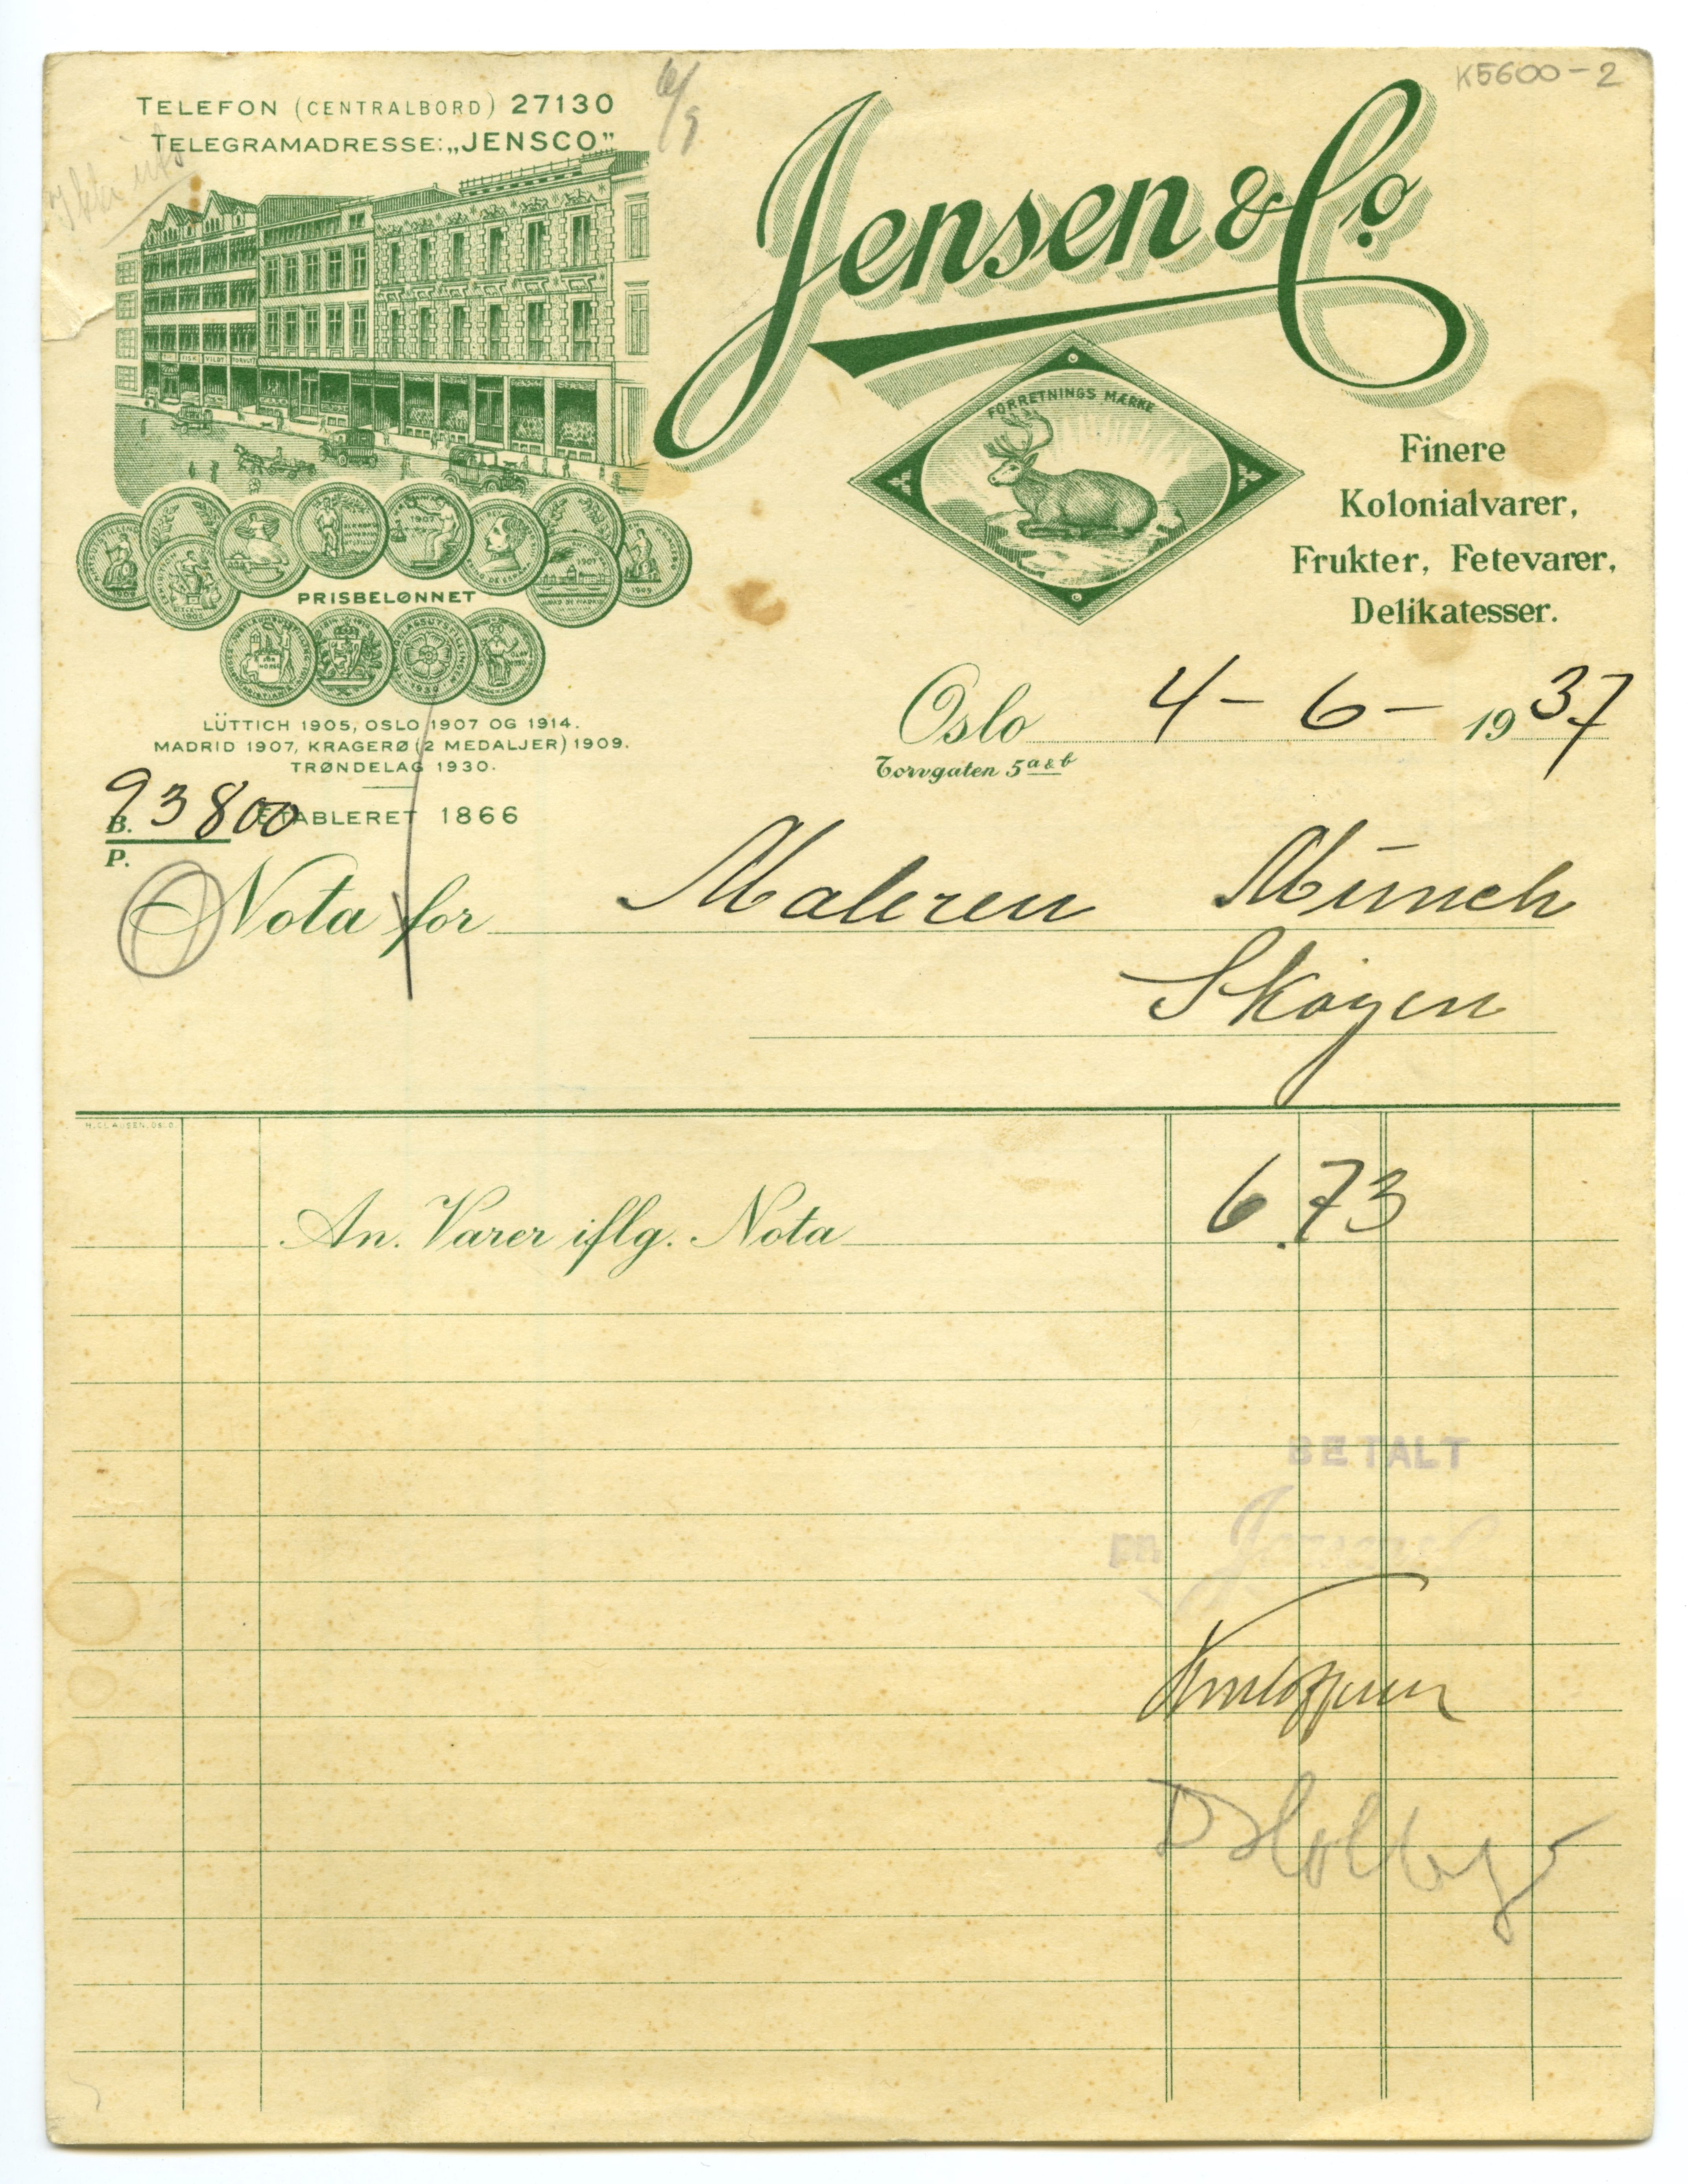 K5600-2
TELEFON (CENTRALBORD) 27130
TELEGRAMADRESSE: „JENSCO”
6/9
Jensen & Co.
FORRETNINGS MÆRKE
Finere
Kolonialvarer,
Frukter, Fetevarer,
Delikatesser.
PRISBELØNNET
LÜTTICH 1905, OSLO 1907 OG 1914.
MADRID 1907, KRAGERØ (2 MEDALJER) 1909.
TRØNDELAG 1930.
ETABLERET 1866
Oslo 4-6-1937
Torvgaten 5 a & b
B. 93800
P.
Nota for Maleren Münch
Skøyen
An. Varer iflg. Nota 6.73
BETALT
pr. Jensen & Co